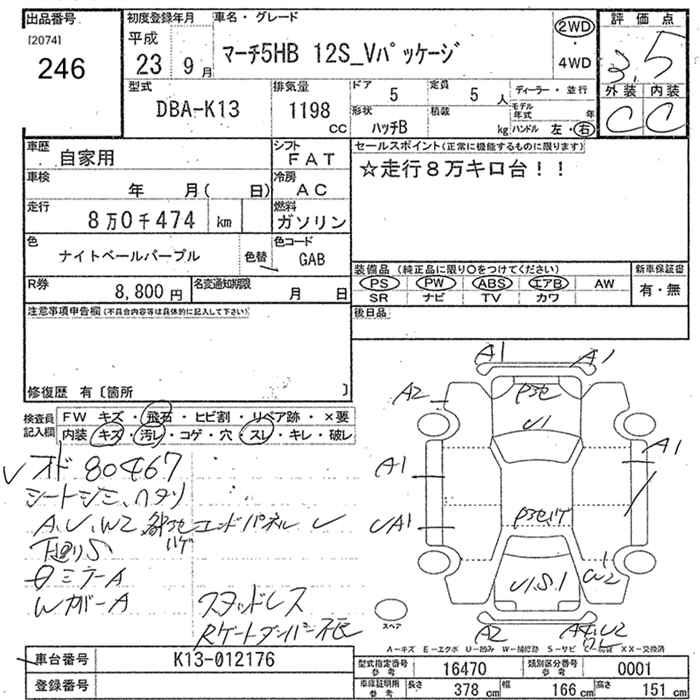 出品番号
[2074]
246
初度登録年月
平成
23 9月
車名・グレード
マーチ5HB 12S_Vパッケージ
2WD
・
4WD
評価点
3.5
外装 内装
C C
型式
DBA-K13
排気量
1198
CC
ドア
5
定員
5人
ディーラー・並行
モデル年式 年
形状
ハッチB
積載
kg
ハンドル 左・右
車歴
自家用
シフト
FAT
セールスポイント(正常に機能するものに限ります)
☆走行8万キロ台!!
車検
年 月( 日)
冷房
AC
走行
8万0千474 km
燃料
ガソリン
色
ナイトベールパープル
色替
色コード
GAB
R券
8,800円
名変通知期限
月 日
装備品 (純正品に限り〇をつけてください)
PS PW ABS エアB AW
SR ナビ TV カワ
新車保証書
有・無
注意事項申告欄(不具合内容等は具体的に記入して下さい)
後日品
修復歴 有〔箇所 〕
検査員記入欄
FW キズ・飛石・ヒビ割・リペア跡・×要
内装 キズ・汚レ・コゲ・穴・スレ・キレ・破レ
オド 80467
シートシミ、ヘタリ
A、U、W2 エンドパネル U
下廻りS
ミラーA
WガーA
スタッドレス
A1
A1
A2
U1
A1
A1
UA1
U1.S1
W2
A2
スペア
A-キズ E-エクボ U-凹み W-補修跡 S-サビ XX-交換済
車台番号
K13-012176
登録番号
型式指定番号 参考
16470
類別区分番号 参考
0001
車庫証明用 参考
長さ 378 cm
幅 166 cm
高さ 151 cm